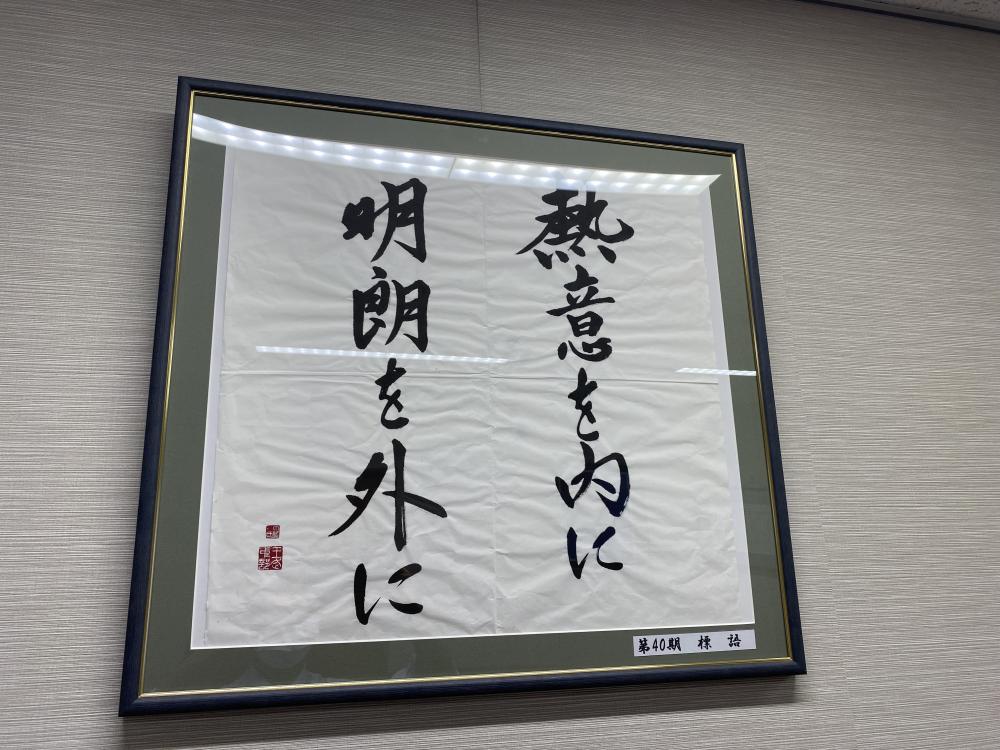 熱意を内に
明朗を外に
第40期 標 語